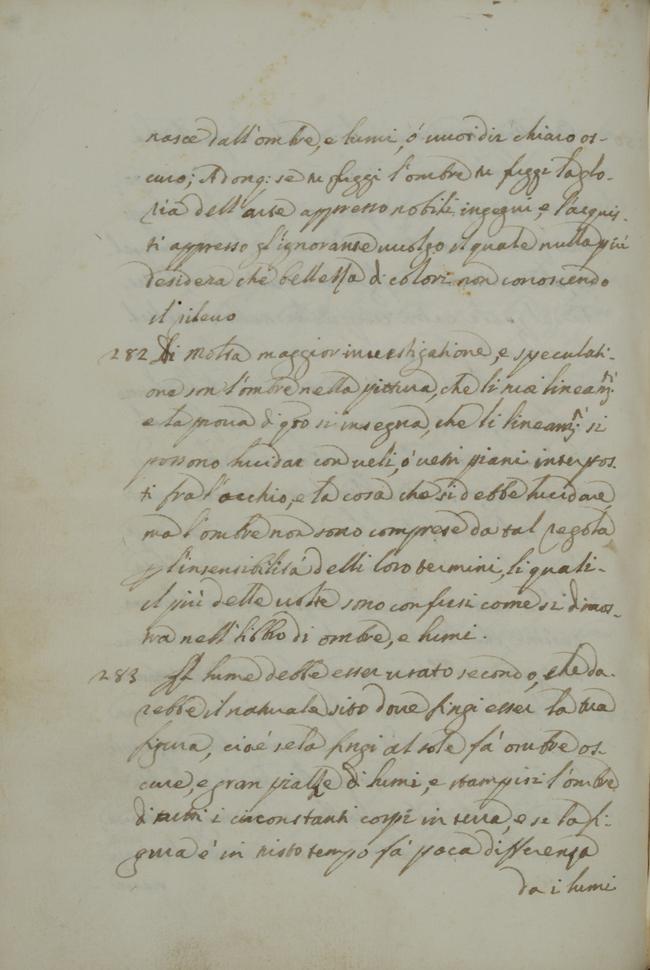 nasce dall'ombre, e lumi, ó vuoi dir chiaro os-
curo; Adonq: se tu fuggi l'ombre tu fuggi la glo-
ria dell'arte appresso nobili ingegni, e l'acquis-
ti appresso gl'ignorante vuolgo il quale nulla piú
desidera che bellezza di colori non conoscendo
il rilevo
282 Di molta maggior investigatione, e speculati-
one son l'ombre nella pittura, che li lineam:ti
e la prova di qto si insegna, che li lineam:ti si
possono lucidar con veli, ó vetri piani interpos-
ti fra l'occhio, e la cosa che si debbe lucidare,
ma l'ombre non sono comprese da tal regola
p l'insensibilitá delli loro termini, li quali-
il piú delle volte sono confusi come si dimos-
tra nell'libbro di ombre, e lumi.
283 Il lume debbe esser usato secondo, che da-
rebbe il naturale sito dove fingi esser la tua
figura, cioé se la fingi al sole fá ombre os-
cure, e gran piazze di lumi, e stampisi l'ombre
di tutti i circonstanti corpi in terra, e se la fi-
gura é in tristo tempo fá poca differenza
da i lumi